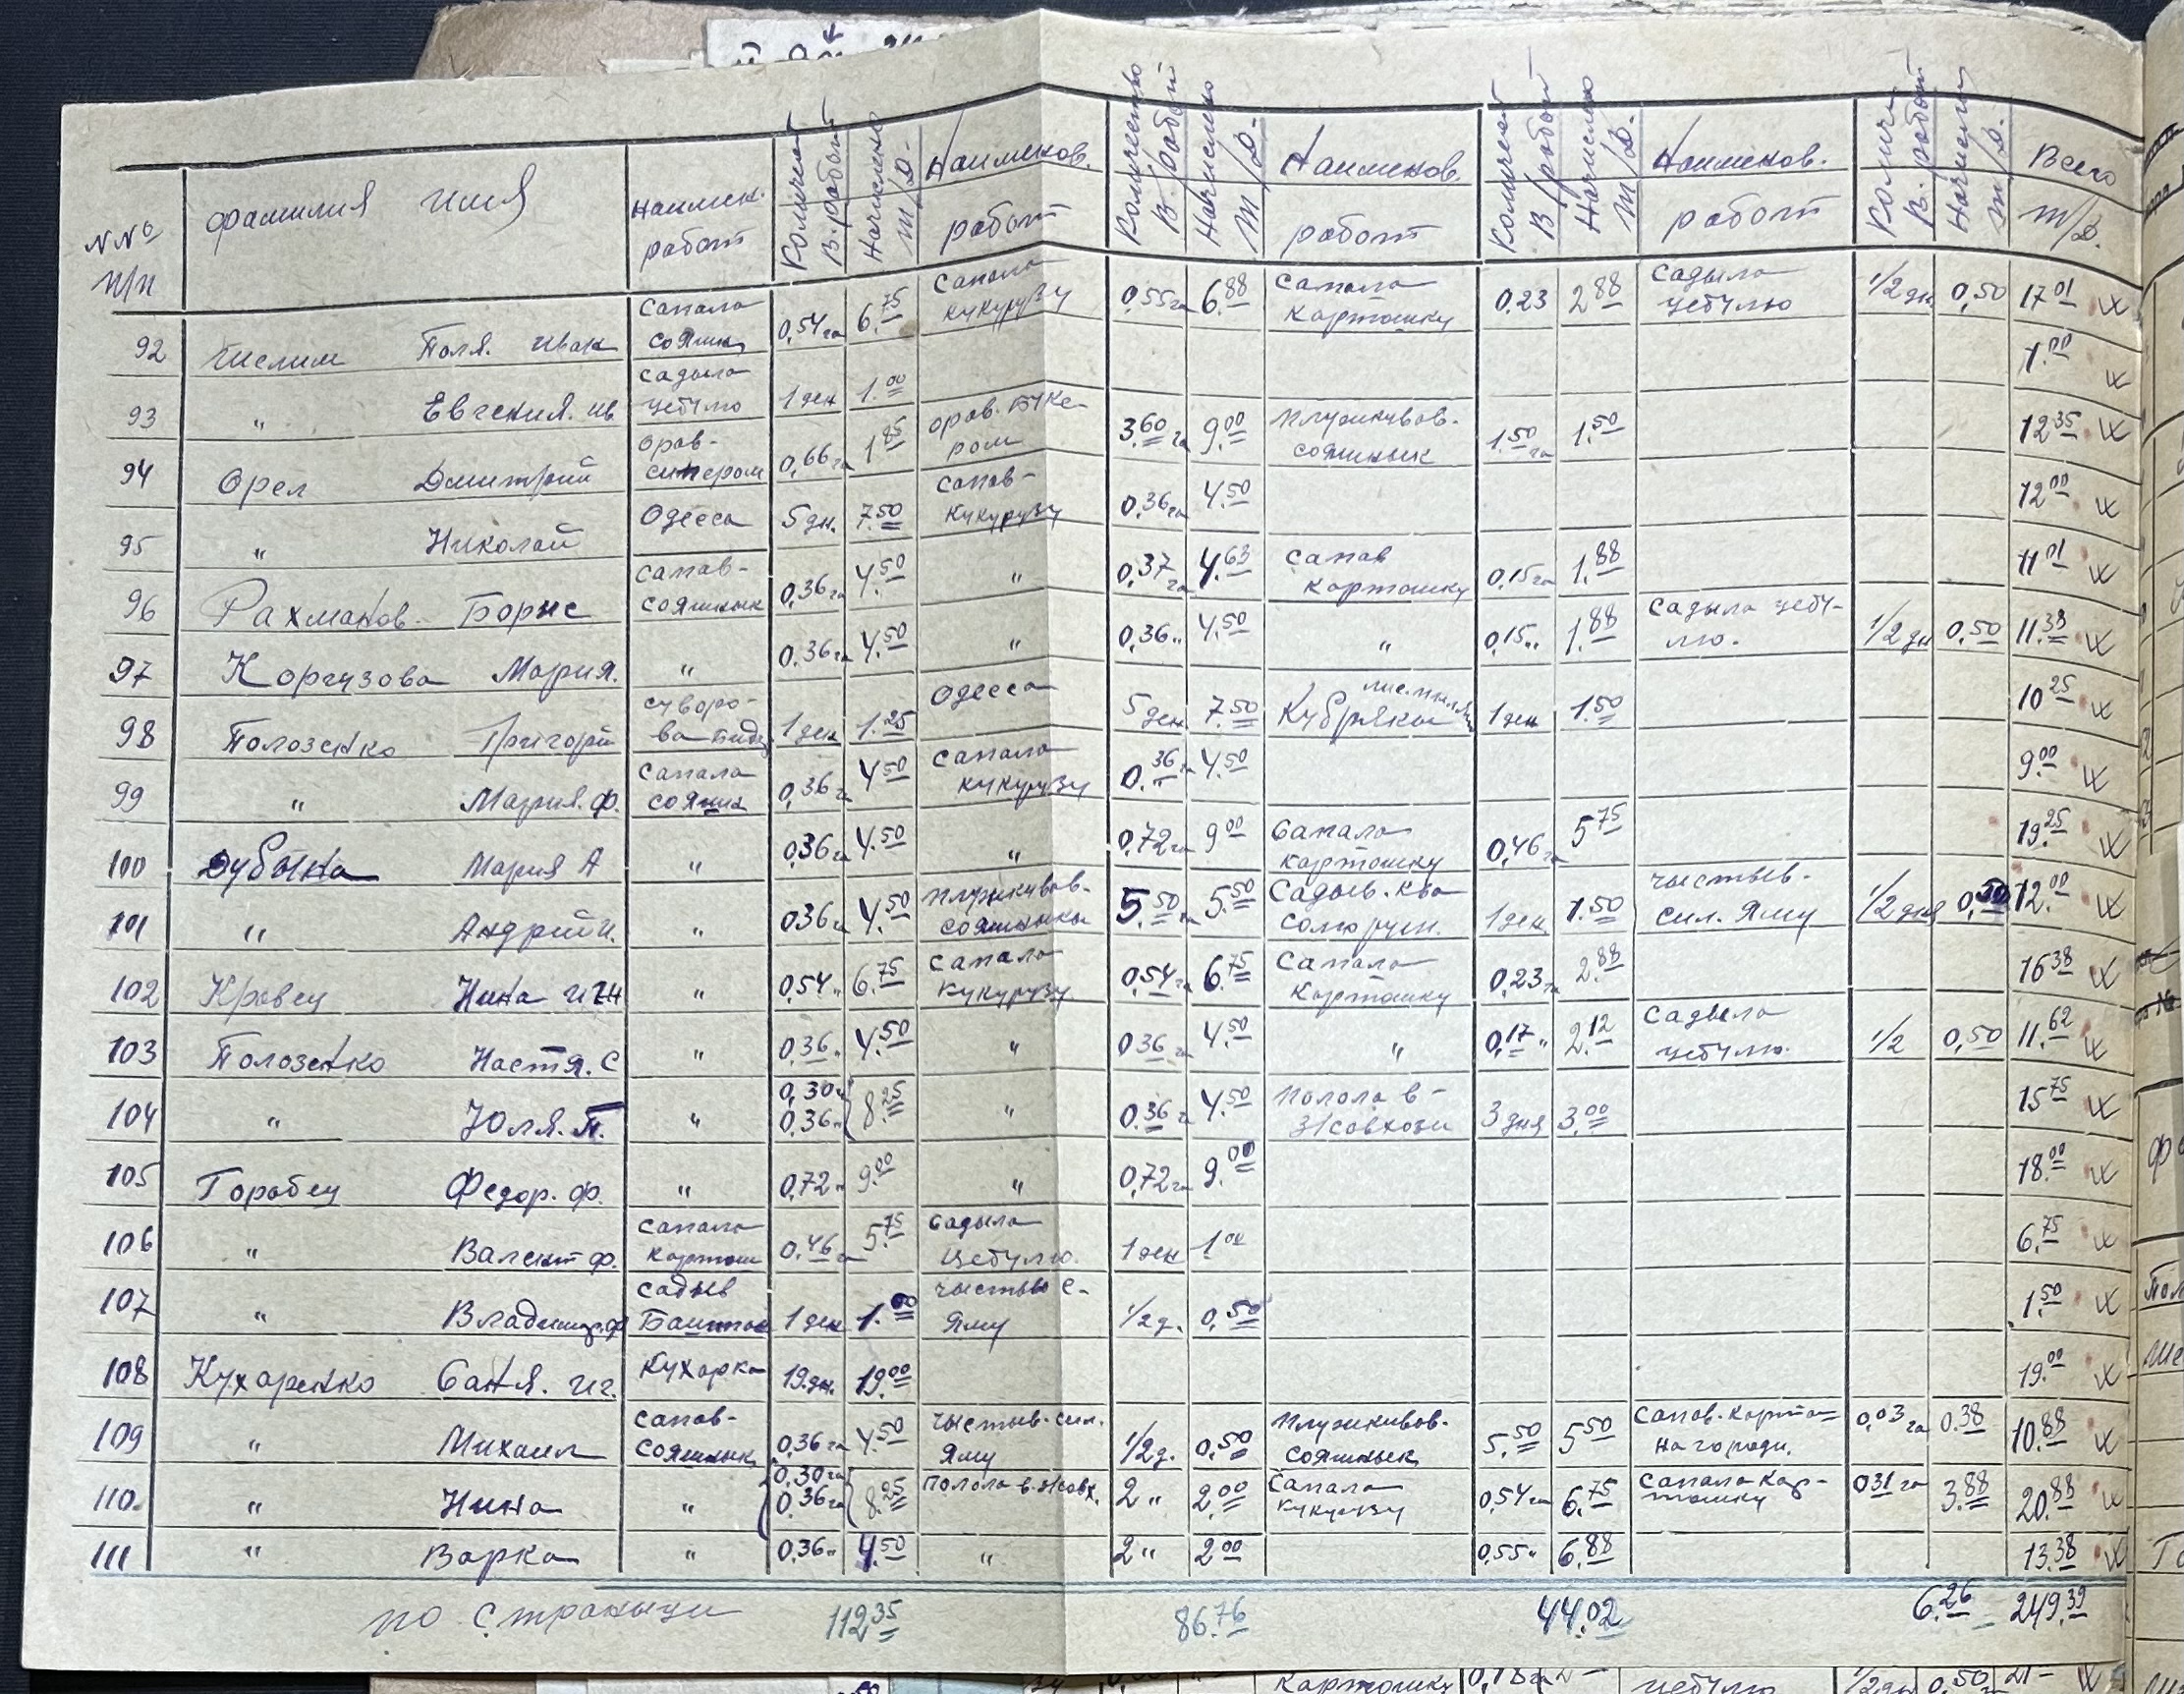 NNº п/п | фамилия имя | Наимен. работ | Количест. В. работ | Начислено Т/Д. | Наименов. работ | Количество В. работ | Начислено Т/Д. | Наименов. работ | Количест. В работ | Начислено Т/Д. | Наименов. работ | Количе. В. работ | Начислен Т/Д. | Всего Т/Д.
92 | Поля. Иван | сапала сояшн | 0,54 га | 6.75 | сапала кукурузу | 0,55 га | 6.88 | сапала картошку | 0,23 | 2 88 | садыла цебулю | 1/2 дн | 0,50 | 17 01
93 | " Евгения. ив | садыла цебулю | 1 ден | 1.00 | | | | | | | | | | 1.00
94 | Орел Дмитрий | орав- сипером | 0,66 га | 1 85 | орав. буке- ром | 3.60 га | 9.00 | плужкував. сояшнык | 1.50 га | 1.50 | | | | 12 35
95 | " Николай | Одесса | 5 дн. | 7.50 | сапав- кукурузу | 0,36 га | 4.50 | | | | | | | 12 00
96 | Рахманов. Борис | сапав- сояшнык | 0,36 га | 4.50 | " | 0,37 га | 4.63 | сапав картошку | 0,15 га | 1.88 | | | | 11 01
97 | Коргузова Мария. | " | 0.36 га | 4.50 | " | 0,36 " | 4.50 | " | 0,15 " | 1.88 | садыла цебу- лю. | 1/2 дн | 0,50 | 11.38
98 | Полозенко Григорий | суворо- ва | 1 ден | 1.25 | Одесса | 5 ден | 7.50 | Кубряки | 1 ден | 1.50 | | | | 10 25
99 | " Мария. Ф. | сапала сояшн | 0,36 га | 4 50 | сапала кукурузу | 0.36 га | 4.50 | | | | | | | 9.00
100 | Мария А | " | 0,36 га | 4.50 | " | 0,72 га | 9 00 | сапала картошку | 0,46 га | 5 75 | | | | 19.25
101 | " Андрий и. | " | 036 га | 4.50 | плужкував- сояшныки | 5.50 га | 5.50 | Садыв. ква | 1 ден | 1.50 | чыстыв- сил. яму | 1/2 дня | 0,50 | 12.00
102 | Кравец Нина | " | 0,54 " | 6.75 | сапала кукурузу | 0,54 га | 6.75 | сапала картошку | 0,23 га | 2.88 | | | | 16 38
103 | Полозенко Настя. С | " | 0,36 " | 4.50 | " | 036 га | 4.50 | " | 0,17 " | 2.12 | Садыла цебулю. | 1/2 | 0,50 | 11.62
104 | " Юля. П. | " | 0,30 га 0,36 " | 8.25 | " | 0.36 га | 4.50 | полола в- з/совхози | 3 дня | 3.00 | | | | 15 75
105 | Горобец Федор. Ф. | " | 0,72 " | 9.00 | " | 0,72 га | 9.00 | | | | | | | 18.00
106 | " Валент Ф. | сапала картош | 0.46 га | 5.75 | садыла цебулю. | 1 ден | 1 00 | | | | | | | 6.75
107 | " Владимир. Ф | садыв Баштан | 1 ден | 1.00 | чыстыв с- яму | 1/2 д. | 0,50 | | | | | | | 1.50
108 | Кухаренко Саня. | Кухарка | 19 дн. | 19.00 | | | | | | | | | | 19.00
109 | " Михаил | сапав- сояшнык | 0,36 га | 4.50 | чыстыв- сил. яму | 1/2 д. | 0.50 | плужкував- сояшнык | 5.50 | 5 50 | сапав. карто= на городи. | 0,03 га | 0.38 | 10.88
110. | " Нина | " | 0,30 га 0,36 га | 8.25 | полола в | 2 " | 2.00 | сапала кукурузу | 0,54 га | 6.75 | сапала кар- тошку | 031 га | 3.88 | 20.88
111 | " Варка | " | 0,36 " | 4.50 | " | 2 " | 2 00 | | 0,55 " | 6.88 | | | | 13.38
по страныци 112 35 86.76 44.02 6.26 249.39
картошку 0,18 га цебулю 1/2 дн 0,50